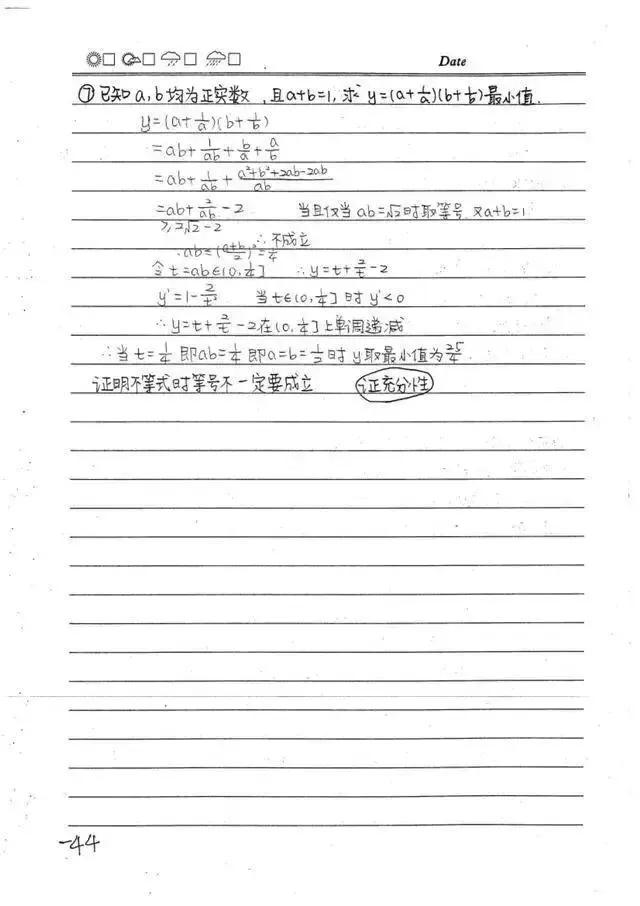 Date
⑦已知a,b均为正实数,且a+b=1,求y=(a+1/a)(b+1/b)最小值.
y=(a+1/a)(b+1/b)
=ab+1/ab+b/a+a/b
=ab+1/ab+(a²+b²+2ab-2ab)/ab
=ab+2/ab-2 当且仅当ab=√2时取等号 又a+b=1
≥2√2-2
∴不成立
ab=(a+b/2)²=1/4
令t=ab∈(0,1/4] ∴y=t+2/t-2
y'=1-2/t² 当t∈(0,1/4]时y'<0
∴y=t+2/t-2在(0,1/4]上单调递减
∴当t=1/4即ab=1/4即a=b=1/2时y取最小值为25/4.
证明不等式时等号不一定要成立 证充分性
-44